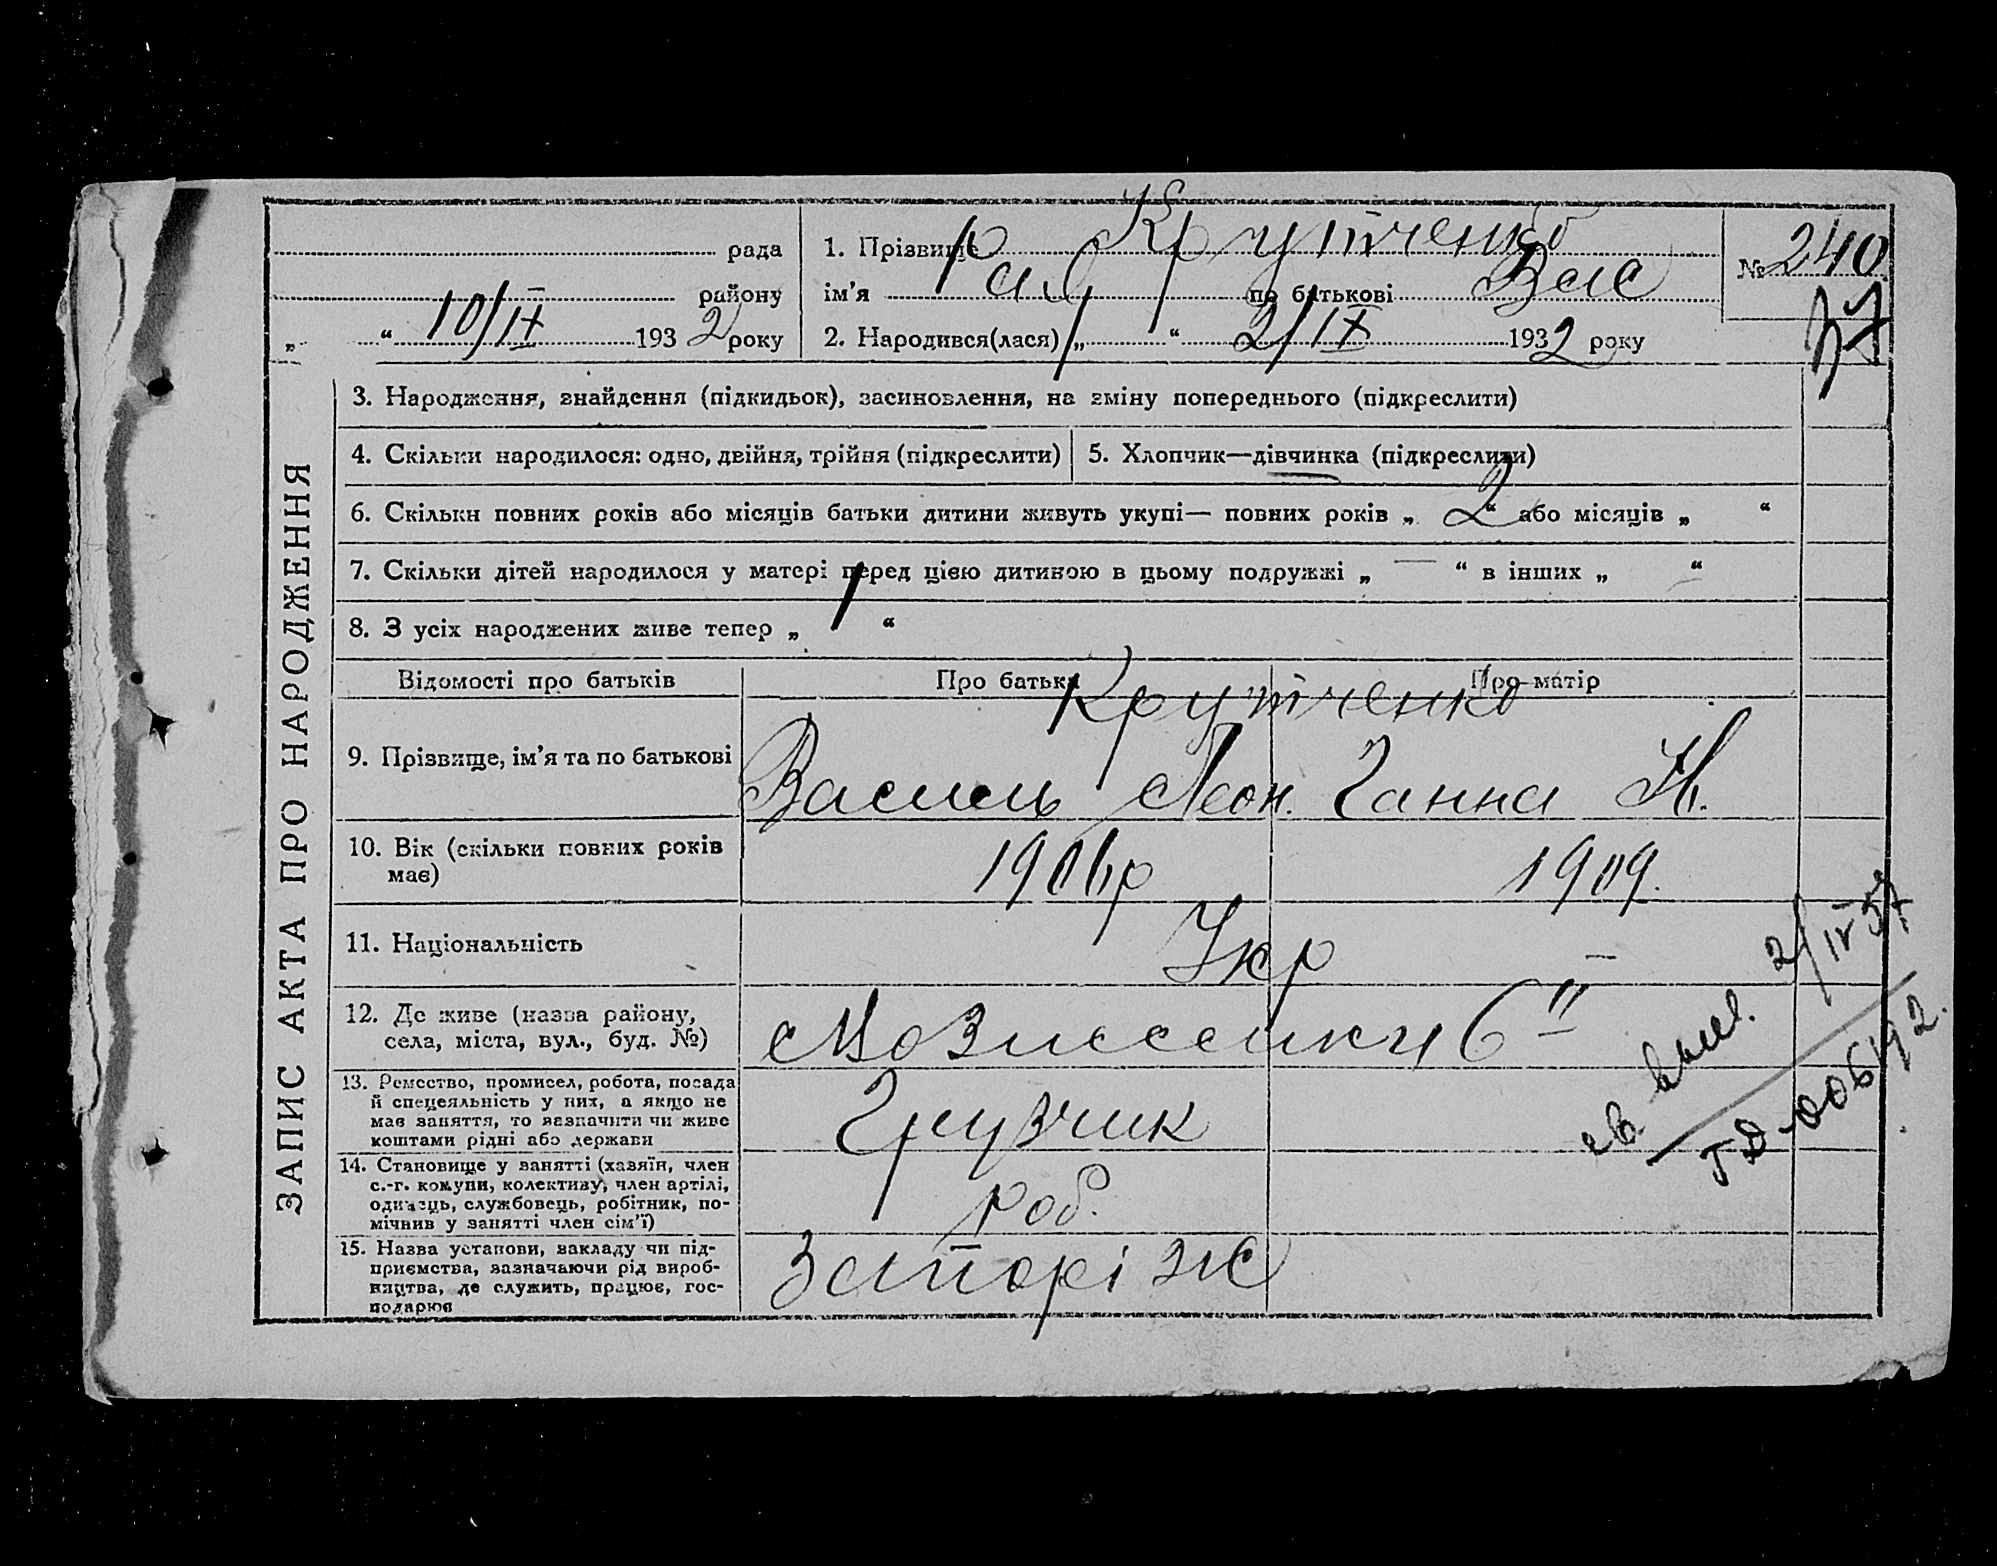 рада
району
„ “ 10/IX 1932 року
1. Прізвище Крутченко
ім’я по батькові Вас
2. Народився(лася) „ “ 2/IX 1932 року
№ 240
37
ЗАПИС АКТА ПРО НАРОДЖЕННЯ
3. Народження, знайдення (підкидьок), засиновлення, на зміну попереднього (підкреслити)
4. Скільки народилося: одно, двійня, трійня (підкреслити)
5. Хлопчик—дівчинка (підкреслити)
6. Скільки повних років або місяців батьки дитини живуть укупі— повних років „ 2 “ або місяців „ “
7. Скільки дітей народилося у матері перед цією дитиною в цьому подружжі „ — “ в інших „ — “
8. З усіх народжених живе тепер „ 1 “
Відомості про батьків
Про батька
Про матір
Крутченко
9. Прізвище, ім’я та по батькові
Василь Леон.
Ганна Н.
10. Вік (скільки повних років
має)
1906р
1909.
11. Національність
Укр
12. Де живе (назва району,
села, міста, вул., буд. №)
13. Ремество, промисел, робота, посада
й спецеяльність у них, а якщо не
має заняття, то зазначити чи живе
коштами рідні або держави
Грузчик
14. Становище у занятті (хазяїн, член
с.-г. комуни, колективу, член артілі,
одинець, службовець, робітник, по-
мічнив у занятті член сім’ї)
роб.
15. Назва установи, закладу чи під-
приємства, зазначаючи рід вироб-
ництва, де служить, працює, гос-
подарює
Запоріж
св. выд. 2/IV 37
ГД 006192.